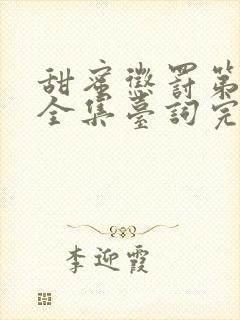 甜蜜懲罰第
全集臺詞完
李迎霞